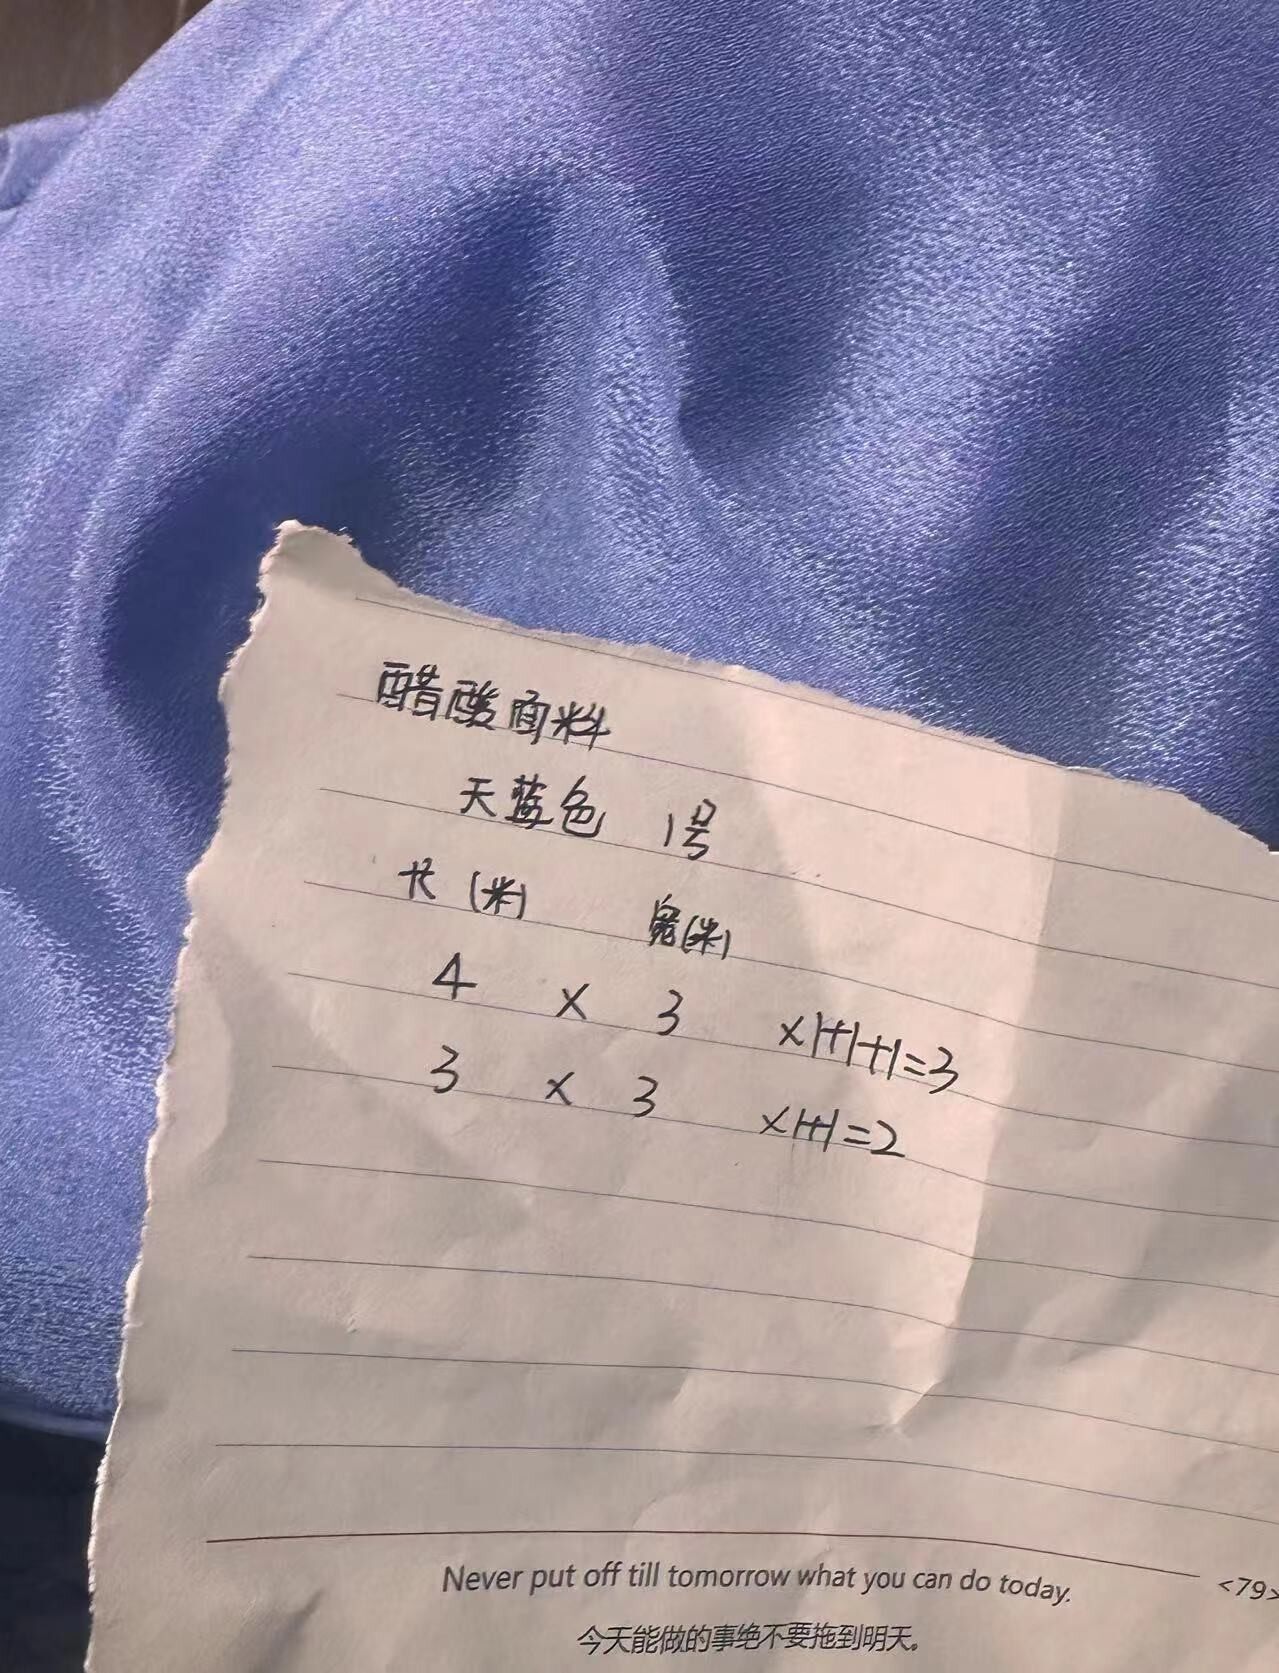 醋酸面料
天蓝色 1号
长(米) 宽(米)
4 × 3 ×1+1+1=3
3 × 3 ×1+1=2
Never put off till tomorrow what you can do today.
<79>
今天能做的事绝不要拖到明天。